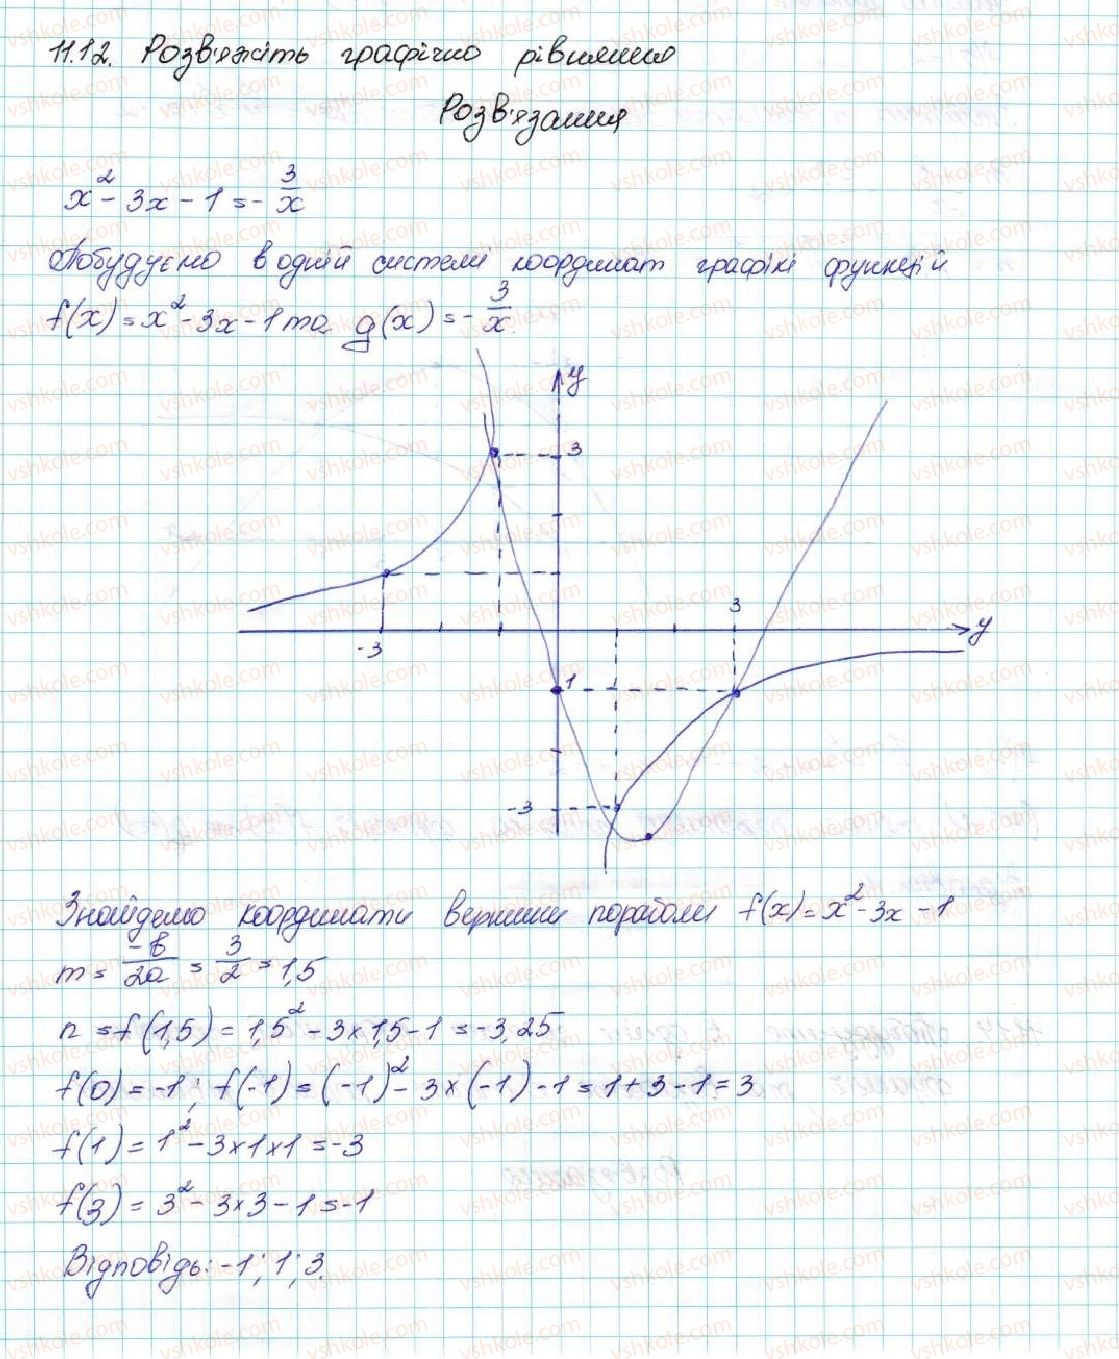 11.12. Розв'яжіть графічно рівняння
Розв'язання
x² - 3x - 1 = - 3/x
Побудуємо в одній системі координат графікі функцій
f(x) = x² - 3x - 1 та g(x) = - 3/x.
y
3
3
y
-3
1
-3
Знайдемо координати вершини параболи f(x) = x² - 3x - 1
m = -b/2a = 3/2 = 1,5
n = f(1,5) = 1,5² - 3×1,5 - 1 = -3,25
f(0) = -1; f(-1) = (-1)² - 3×(-1) - 1 = 1 + 3 - 1 = 3
f(1) = 1² - 3×1×1 = -3
f(3) = 3² - 3×3 - 1 = -1
Відповідь: -1; 1; 3.
vshkole.com